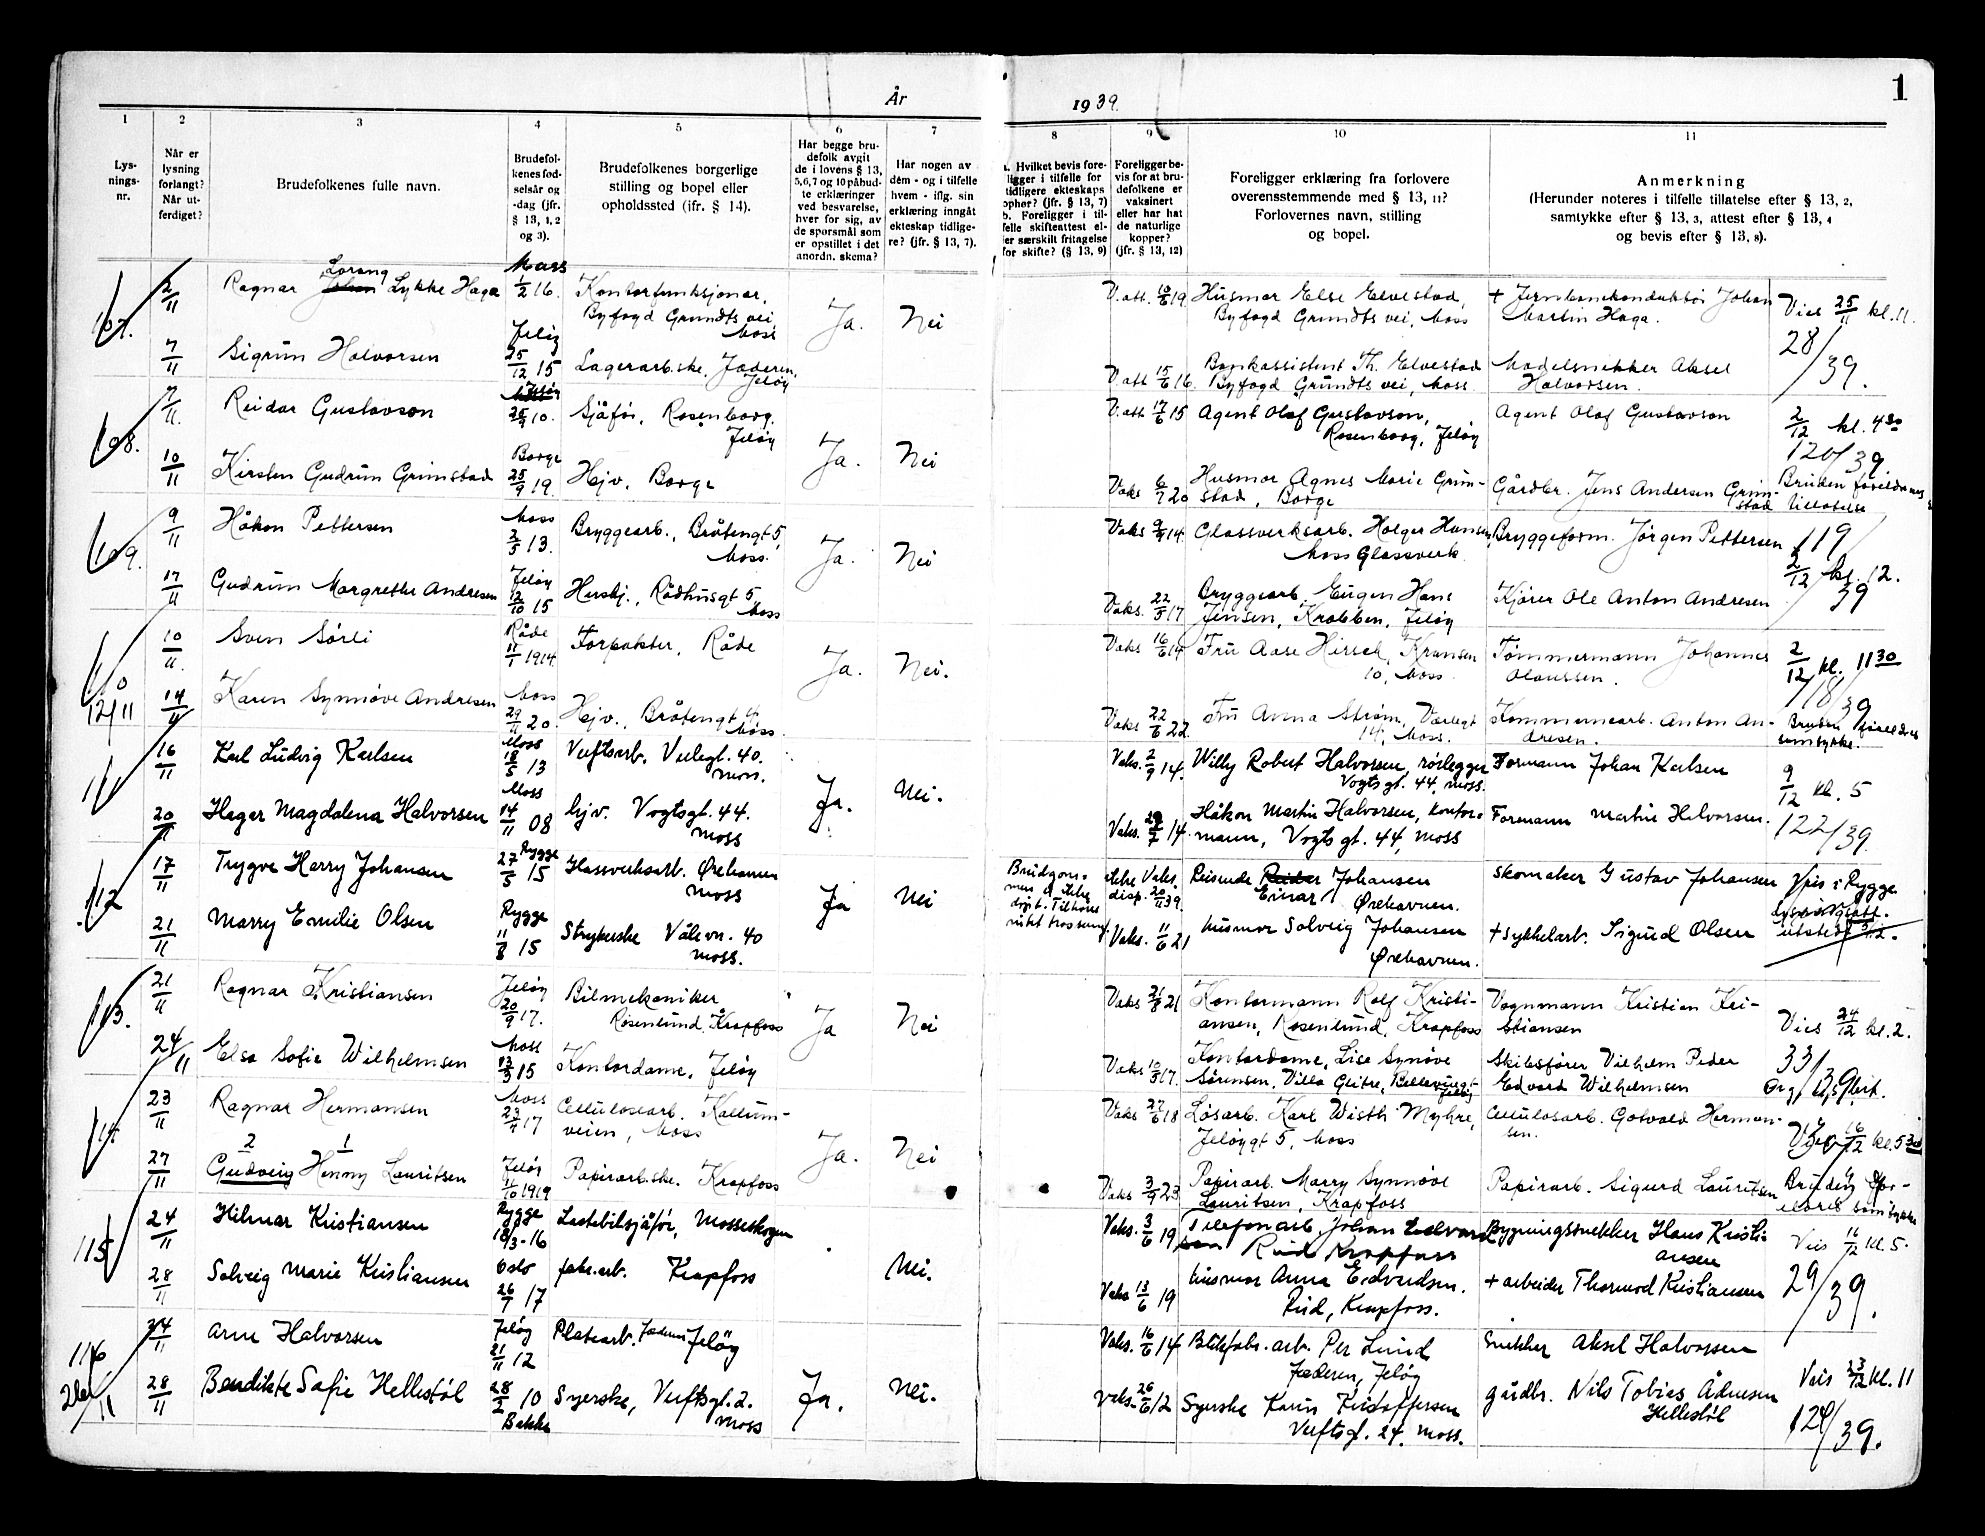 1
År
1939.
1
2
3
4
5
6
7
8
9
10
11
Lys-
nings-
nr.
Når er
lysning
forlangt?
Når ut-
ferdiget?
Brudefolkenes fulle navn.
Brudefol-
kenes fød-
selsår og
-dag (jfr.
§ 13, 1, 2
og 3).
Brudefolkenes borgerlige
stilling og bopel eller
opholdssted (ifr. § 14).
Har begge bru-
defolk avgit
de i lovens § 13,
5,6,7 og 10 påbud-
te erklæringer
ved besvarelse,
hver for sig, av
de spørsmål som
er opstillet i det
anordn. skema?
Har nogen av
dem - og i tilfelle
hvem - iflg. sin
erklæring inngått
ekteskap tidlige-
re? (jfr. § 13, 7).
Hvilket bevis fore-
ligger i tilfelle for
tidligere ekteskaps
ophør? (jfr. § 13, 7)
b. Foreligger i til-
felle skifteattest el-
ler særskilt fritagelse
for skifte? (§ 13, 9)
Foreligger be-
vis for at bru-
defolkene er
vaksinert
eller har hat
de naturlige
kopper?
(jfr. § 13, 12)
Foreligger erklæring fra forlovere
overensstemmende med § 13, 11?
Forlovernes navn, stilling
og bopel.
Anmerkning
(Herunder noteres i tilfelle tillatelse efter § 13, 2,
samtykke efter § 13, 3, attest efter § 13, 4
og bevis efter § 13, 8).
107. 2/11 Ragnar Lorang Lykke Haga Moss 1/2 16. Kontorfunksjonær,
Byfogd Grundts vei, Moss
Ja. Nei
V.att. 10/6 19 Husmor Else Elvestad,
Byfogd Grundts vei, Moss
+ Jernbanekonduktør Johan
Martin Haga.
Vies 25/11 kl. 11.
28/39.
7/11 Sigrun Halvorsen Jeløy 25/12 15 Lagerarb.ske. Jæderen,
Jeløy
V.att 15/6 16. Bankassistent Th. Elvestad
Byfogd Grundts vei, Moss.
Modelsnekker Aksel
Halvorsen.
108. 7/11. Reidar Gustavson 10. Sjåfør, Rosenborg,
Jeløy
Ja. Nei
V.att. 17/6 15 Agent Olaf Gustavson,
Rosenborg, Jeløy
Agent Olaf Gustavson
2/12 kl. 4 30
120/39
10/11 Kirsten Gudrun Grimstad Borge 25/9 19. Hejv. Borge
Vaks 6/7 20 Husmor Agnes Marie Grim-
stad, Borge
Gårdbr. Jens Andersen Grim-
stad
Bruden foreldrenes
tillatelse
109. 9/11 Håkon Pettersen Moss 2/5 13. Bryggearb., Bråtengt 5,
Moss.
Ja. Nei
Vaks 14. Glassverksarb. Holger Hansen,
Moss Glassverk
Bryggeform. Jørgen Pettersen
119/39
2/12 kl. 12.
17/11 Gudrun Margrethe Andresen Jeløy 12/10 15 Husbj., Rådhusgt 5,
Moss
Vaks. 22/5 17 Bryggearb. Eugen Hans
Jensen, Krabben, Jeløy
Kjører Ole Anton Andresen
110 10/11. Sven Sørli Råde 11/1 1914. Forpakter, Råde
Ja. Nei.
Vaks 16/6 14 Fru Aase Hirsch, Kransen
10, Moss
Tømmermann Johannes
Olaussen.
2/12 kl. 11 30
118/39
12/11 14/11 Karen Synnøve Andresen Moss 29/11 20. Hejv., Bråtengt 4,
Moss.
Vaks 22/6 22. Fru Anna Strøm, Værlegt
14, Moss.
Tommernearb. Anton An-
dresen.
Bruden foreldres
samtykke.
111 16/11 Karl Ludvig Karlsen Moss 18/5 13 Verftsarb. Verlegt. 40.
Moss.
Ja. Nei.
Vaks. 2/9 14. Willy Robert Halvorsen, rørlegger
Vogtsgt. 44, Moss.
Formann Johan Karlsen
9/12 kl. 5
122/39.
20/11 Hagar Magdalena Halvorsen Moss 14/11 08 hjv. Vogtsgt. 44.
Moss
Vaks. 14. Håkon Martin Halvorsen, kontor-
mann, Vogts gt. 44, Moss
Formann Martin Halvorsen.
112 17/11 Trygve Harry Johansen Rygge 27/5 15 Glassverksarb. Ørehavnen
Moss
Ja Nei
ikke Vaks.
disp. 20/11 39. Reisende Johansen
Einar Ørehavnen.
Skomaker Gustav Johansen
Vies i Rygge
21/11 Marry Emilie Olsen Rygge 11/8 15 Strykerske Våle vn. 40
Moss.
Vaks. 11/6 21 husmor Solveig Johansen
Ørehavnen.
+ Sykkelarb. Sigurd Olsen
113. 21/11 Ragnar Kristiansen Jeløy 20/9 17. Bilmekaniker
Rosenlund, Krapfoss
Ja Nei
Vaks 21/8 21 Kontormann Rolf Kristi-
ansen, Rosenlund, Krapfoss
Vognmann Kristian Kri-
stiansen
Vies 24/12 kl. 2.
33/39
24/11 Elsa Sofie Wilhelmsen Moss 13/3 15 Kontordame, Jeløy
Vaks 10/5 17. Kontordame, Lise Synøve
Sørensen, Villa Glitre, Bellevuegt
Jeløy
Skibsfører Vilhelm Peder
Edvard Wilhelmsen
114. 23/11 Ragnar Hermansen Moss 17 Cellulosearb. Kallum-
veien, Moss
Ja. Nei
Vaks 27/6 18 Løsarb. Karl Wisth Myhre,
Jeløygt 5, Moss
Cellulosarb. Gotvald Herman-
sen.
16/12 kl. 5
2 1
27/11 Gudveig Henny Lauritsen Jeløy 11/10 1919 Papirarb.ske. Krapfoss
Vaks 3/9 23 Papirarb. Marry Synnøve
Lauritsen, Krapfoss
Papirarb. Sigurd Lauritsen
115 24/11 Hilmar Kristiansen Rygge 18/3-16 Lastebilsjåfør, Mosseskogen
Nei.
Vaks. 3/6 19 Telefonarb Johan Edvard-
sen Rud Krapfoss
Bygningssnekker Hans Kristi-
ansen
Vies 16/12 kl. 5.
29/39.
28/11 Solveig Marie Kristiansen Oslo 26/7 17 fabr.arb. Krapfoss
Vaks 13/6 19 husmor Anna Edvardsen.
Rud, Krapfoss.
+ arbeider Thormod Kristiansen
116 24/11 Arne Halvorsen Jeløy 21/11 12 Platearb. Jæderen Jeløy
Ja. Nei.
Vaks. 16/6 14 Blikfabr. arb. Per Lund
Jæderen, Jeløy
Snekker Aksel Halvorsen
Vies 23/12 kl. 11
124/39.
28/11 Bendikte Sofie Hellestøl 28/2 10 Bakke Syerske, Verftsgt. 2.
Moss
Vaks. 26/6 12 Syerske Karin Kristoffersen
Verftsgt. 24. Moss.
gårdbr. Nils Tobias Ådnesen
Hellestøl